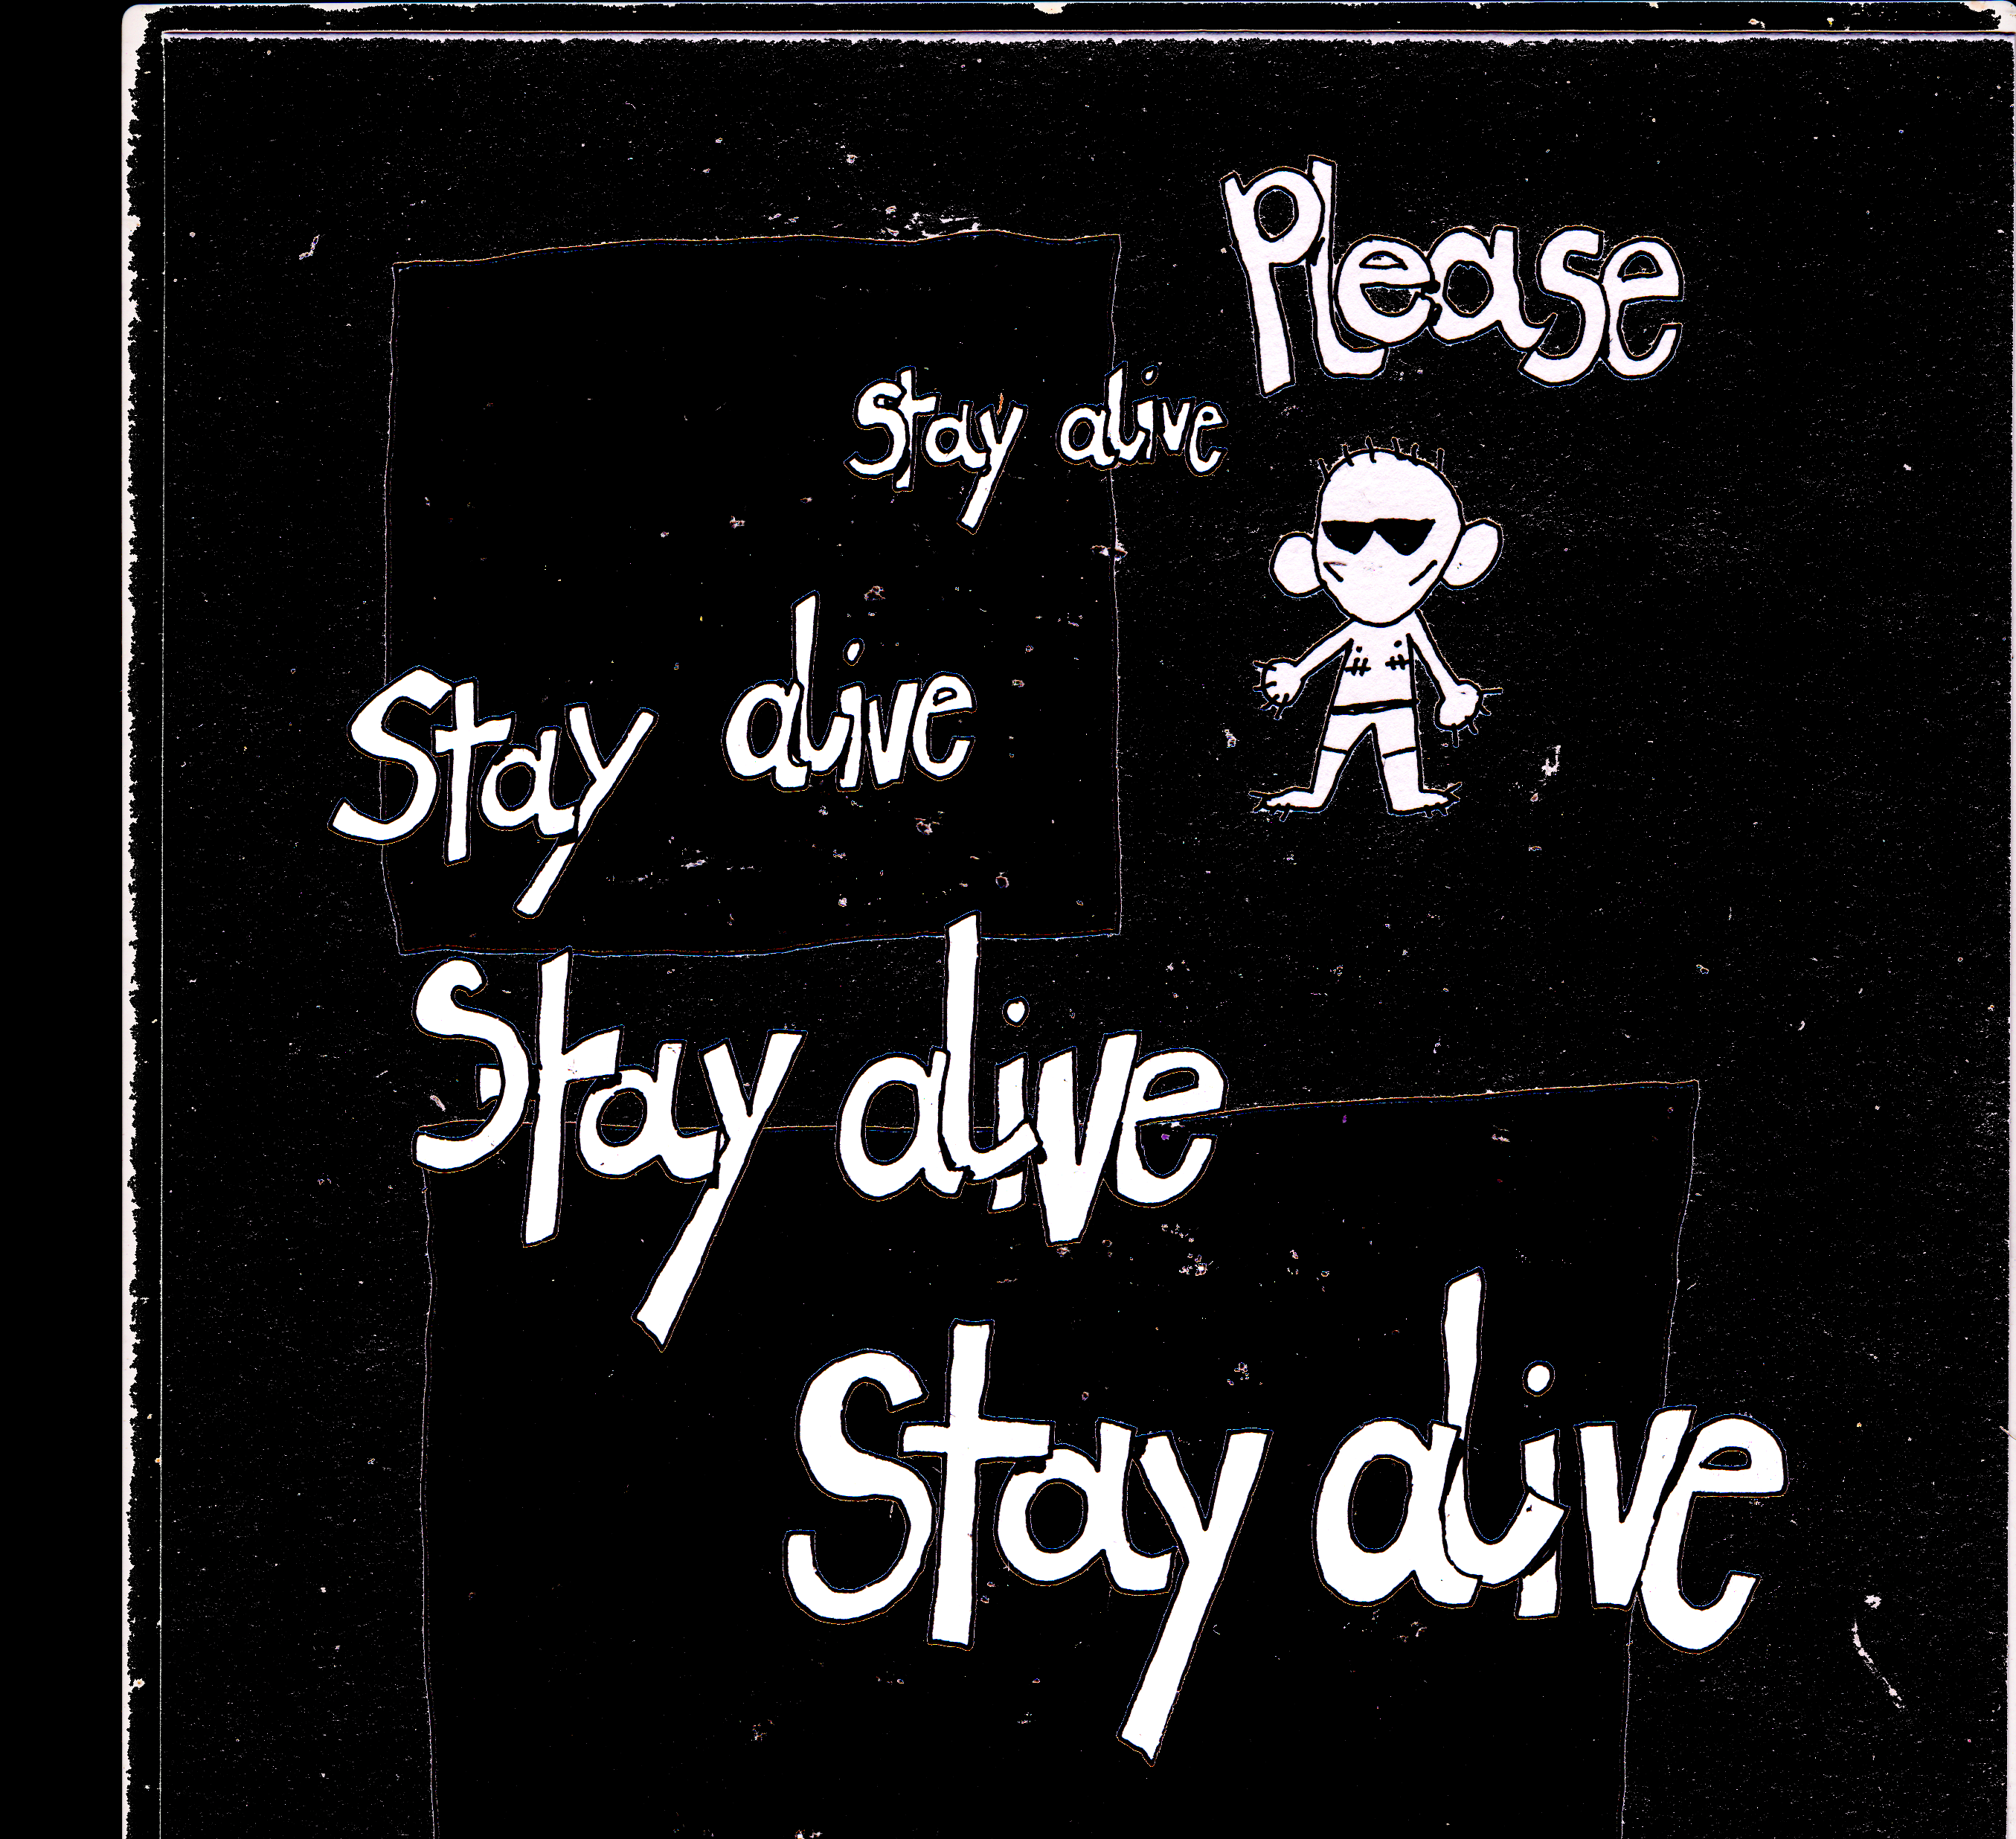 Please
Stay alive
Stay alive
Stay alive
Stay alive